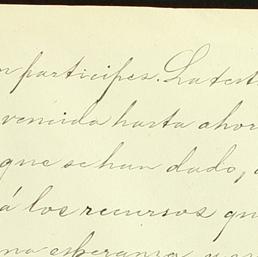 n participes. La est
venida hasta ahor
que se han dado,
á los recursos qu
na esperanza, y